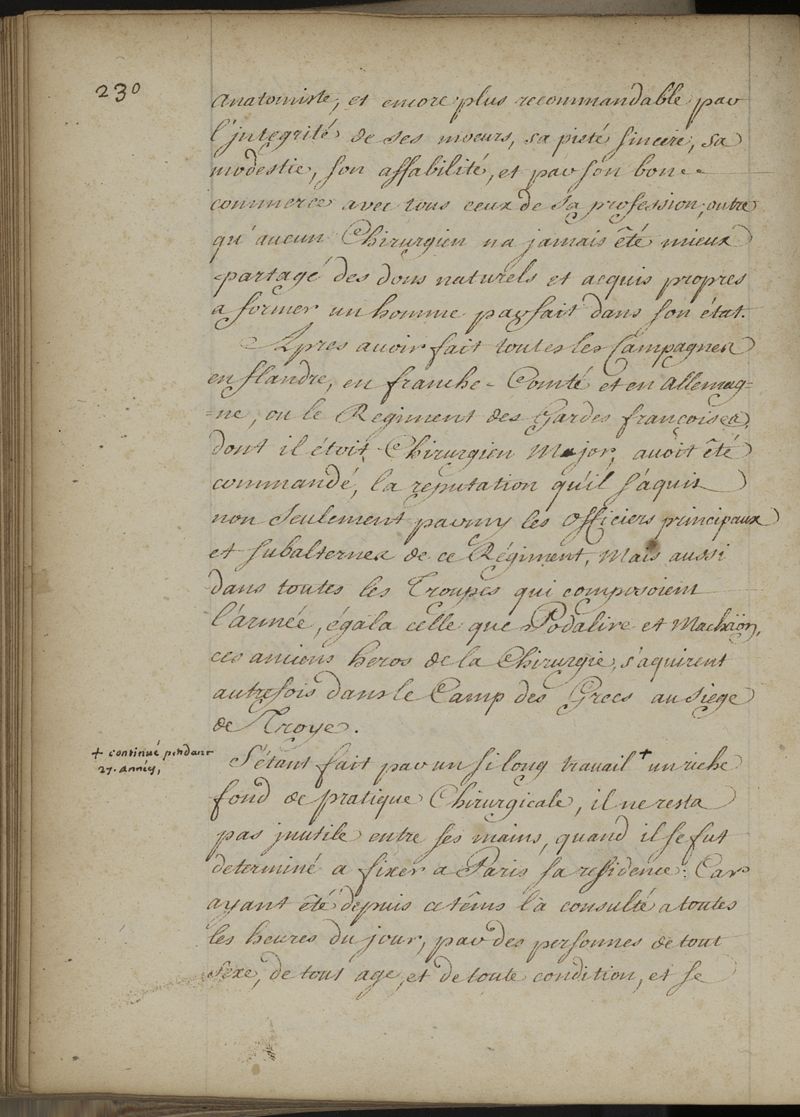 230
anatomiste, et encore plus recommandable par
l'jntegrité de ses moeurs, sa pieté sincere, sa
modestie, son affabilité, et par son bon
commerce avec tous ceux de sa profession; outre
qu'aucun Chirurgien na jamais été mieux
partagé des dons naturels et acquis propres
a former un homme parfait dans son état.
Apres avoir fait toutes les Campagnes
en flandre, en franche-Comté et en Allemag=
=ne, ou le Regiment des Gardes françoises,
dont il étoit Chirurgien Major, avoit êté
commandé, la reputation qu'il s'aquit
non seulement parmy les officiers principaux
et subalternes de ce Régiment, Mais aussi
dans toutes les Troupes qui composoient
l'armée, égala celle que Podalire et Machäon,
ces anciens heros de la Chirurgie, s'aquirent
autrefois dans le Camp des Grecs au siege
de Troye.
S'étant fait par un si long travail + un riche
+ continué pendant
27. années,
fond de pratique Chirurgicale, il ne resta
pas jnutile entre ses mains, quand il se fut
determiné a fixer a Paris sa residence: Car
ayant êté depuis ce têms là consulté a toutes
les heures du jour, par des personnes de tout
sexe, de tout age, et de toute condition, et se